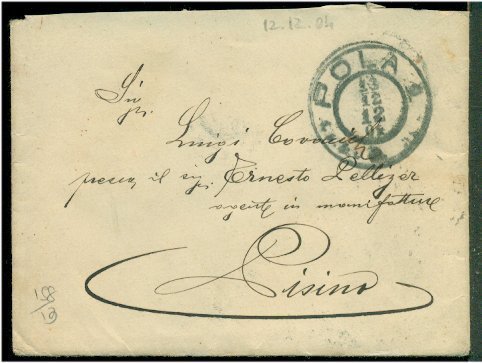 12.12.04
POLA 1
12
12
Sig.
Luigi
presso il sig. Ernesto Pellizer
agente in manifatture
Pisino